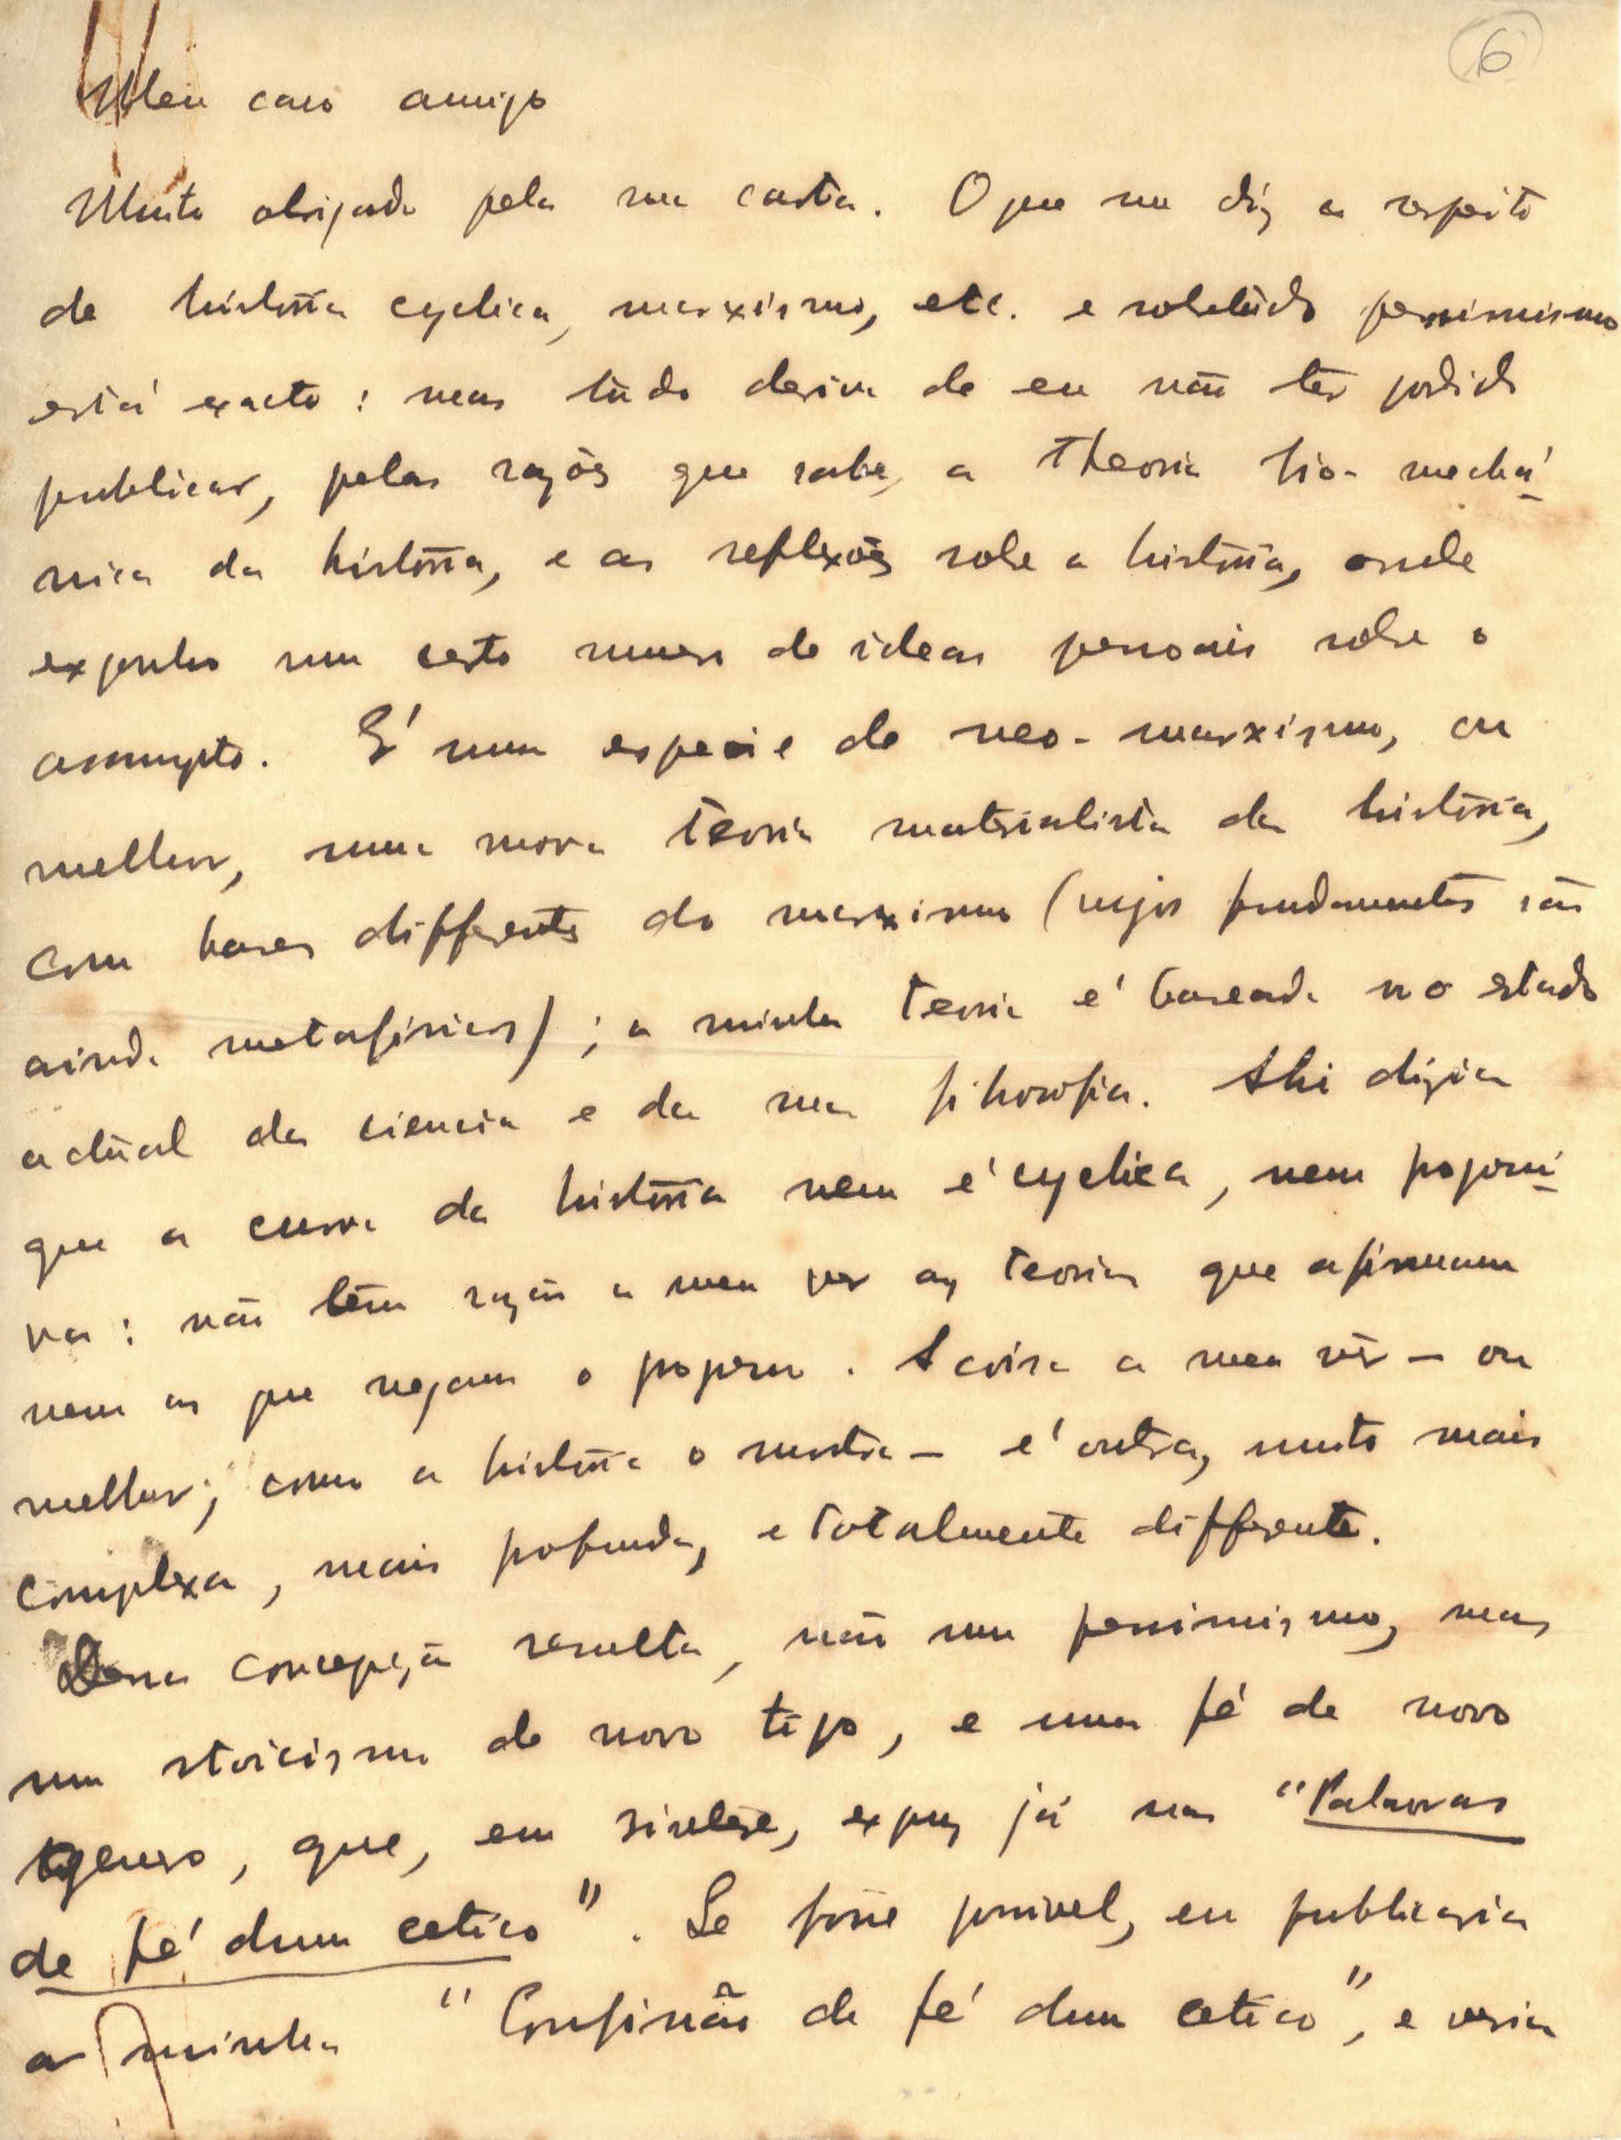 6
Meu caro amigo
Muito obrigado pela sua carta. O que me diz a respeito
de história cyclica, marxismo, etc. e sobretudo pessimismo
está exacto: mas tudo deriva de eu não ter podido
publicar, pelas razões que sabe, a Theoria bio-mechá-
nica da história, e as reflexões sobre a história, onde
exponho um certo numero de ideas pessoais sobre o
assumpto. É uma especie de neo-marxismo, ou
melhor, uma nova teoria materialista da história,
com bases differentes do marxismo (cujos fundamentos são
ainda metafísicos); a minha teoria é baseada no estado
actual da ciencia e da sua filosofia. Ahi dizia
que a curva da história nem é cyclica, nem progressi-
va: não têm razão a meu ver as teorias que afirmam
nem as que negam o progresso. A coisa a meu vêr – ou
melhor, como a história o mostra – é outra, muito mais
complexa, mais profunda, e totalmente differente.
Dessa concepção resulta, não um pessimismo, mas
um stoicismo de novo tipo, e uma fé de novo
genero, que, em sintese, expuz já nas "Palavras
de fé dum cetico". Se fosse possivel, eu publicaria
a minha "Confissão de fé dum cetico", e veria